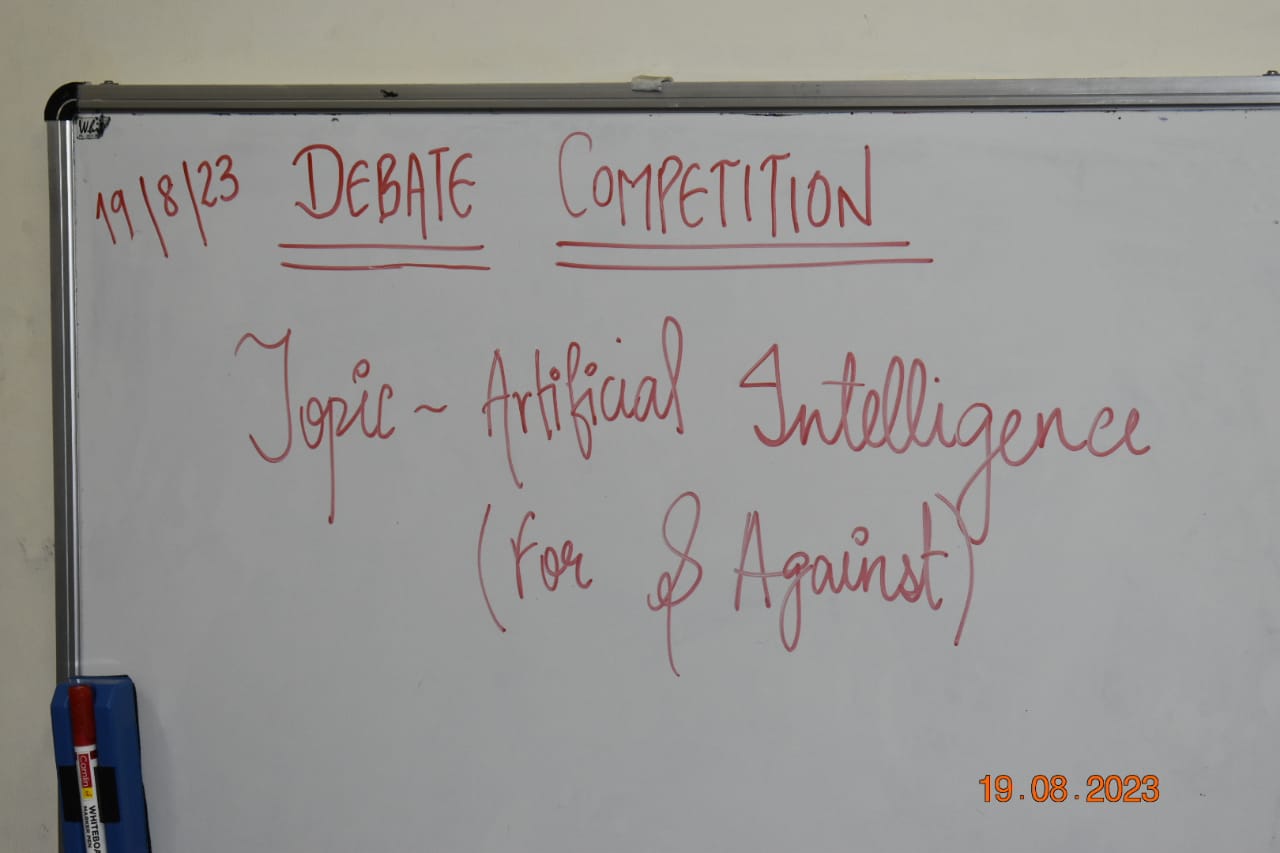 19/8/23 DEBATE COMPETITION
Topic ~ Artificial Intelligence
(For & Against)
Camlin
WHITEBOA
MARKER PEN
19.08.2023